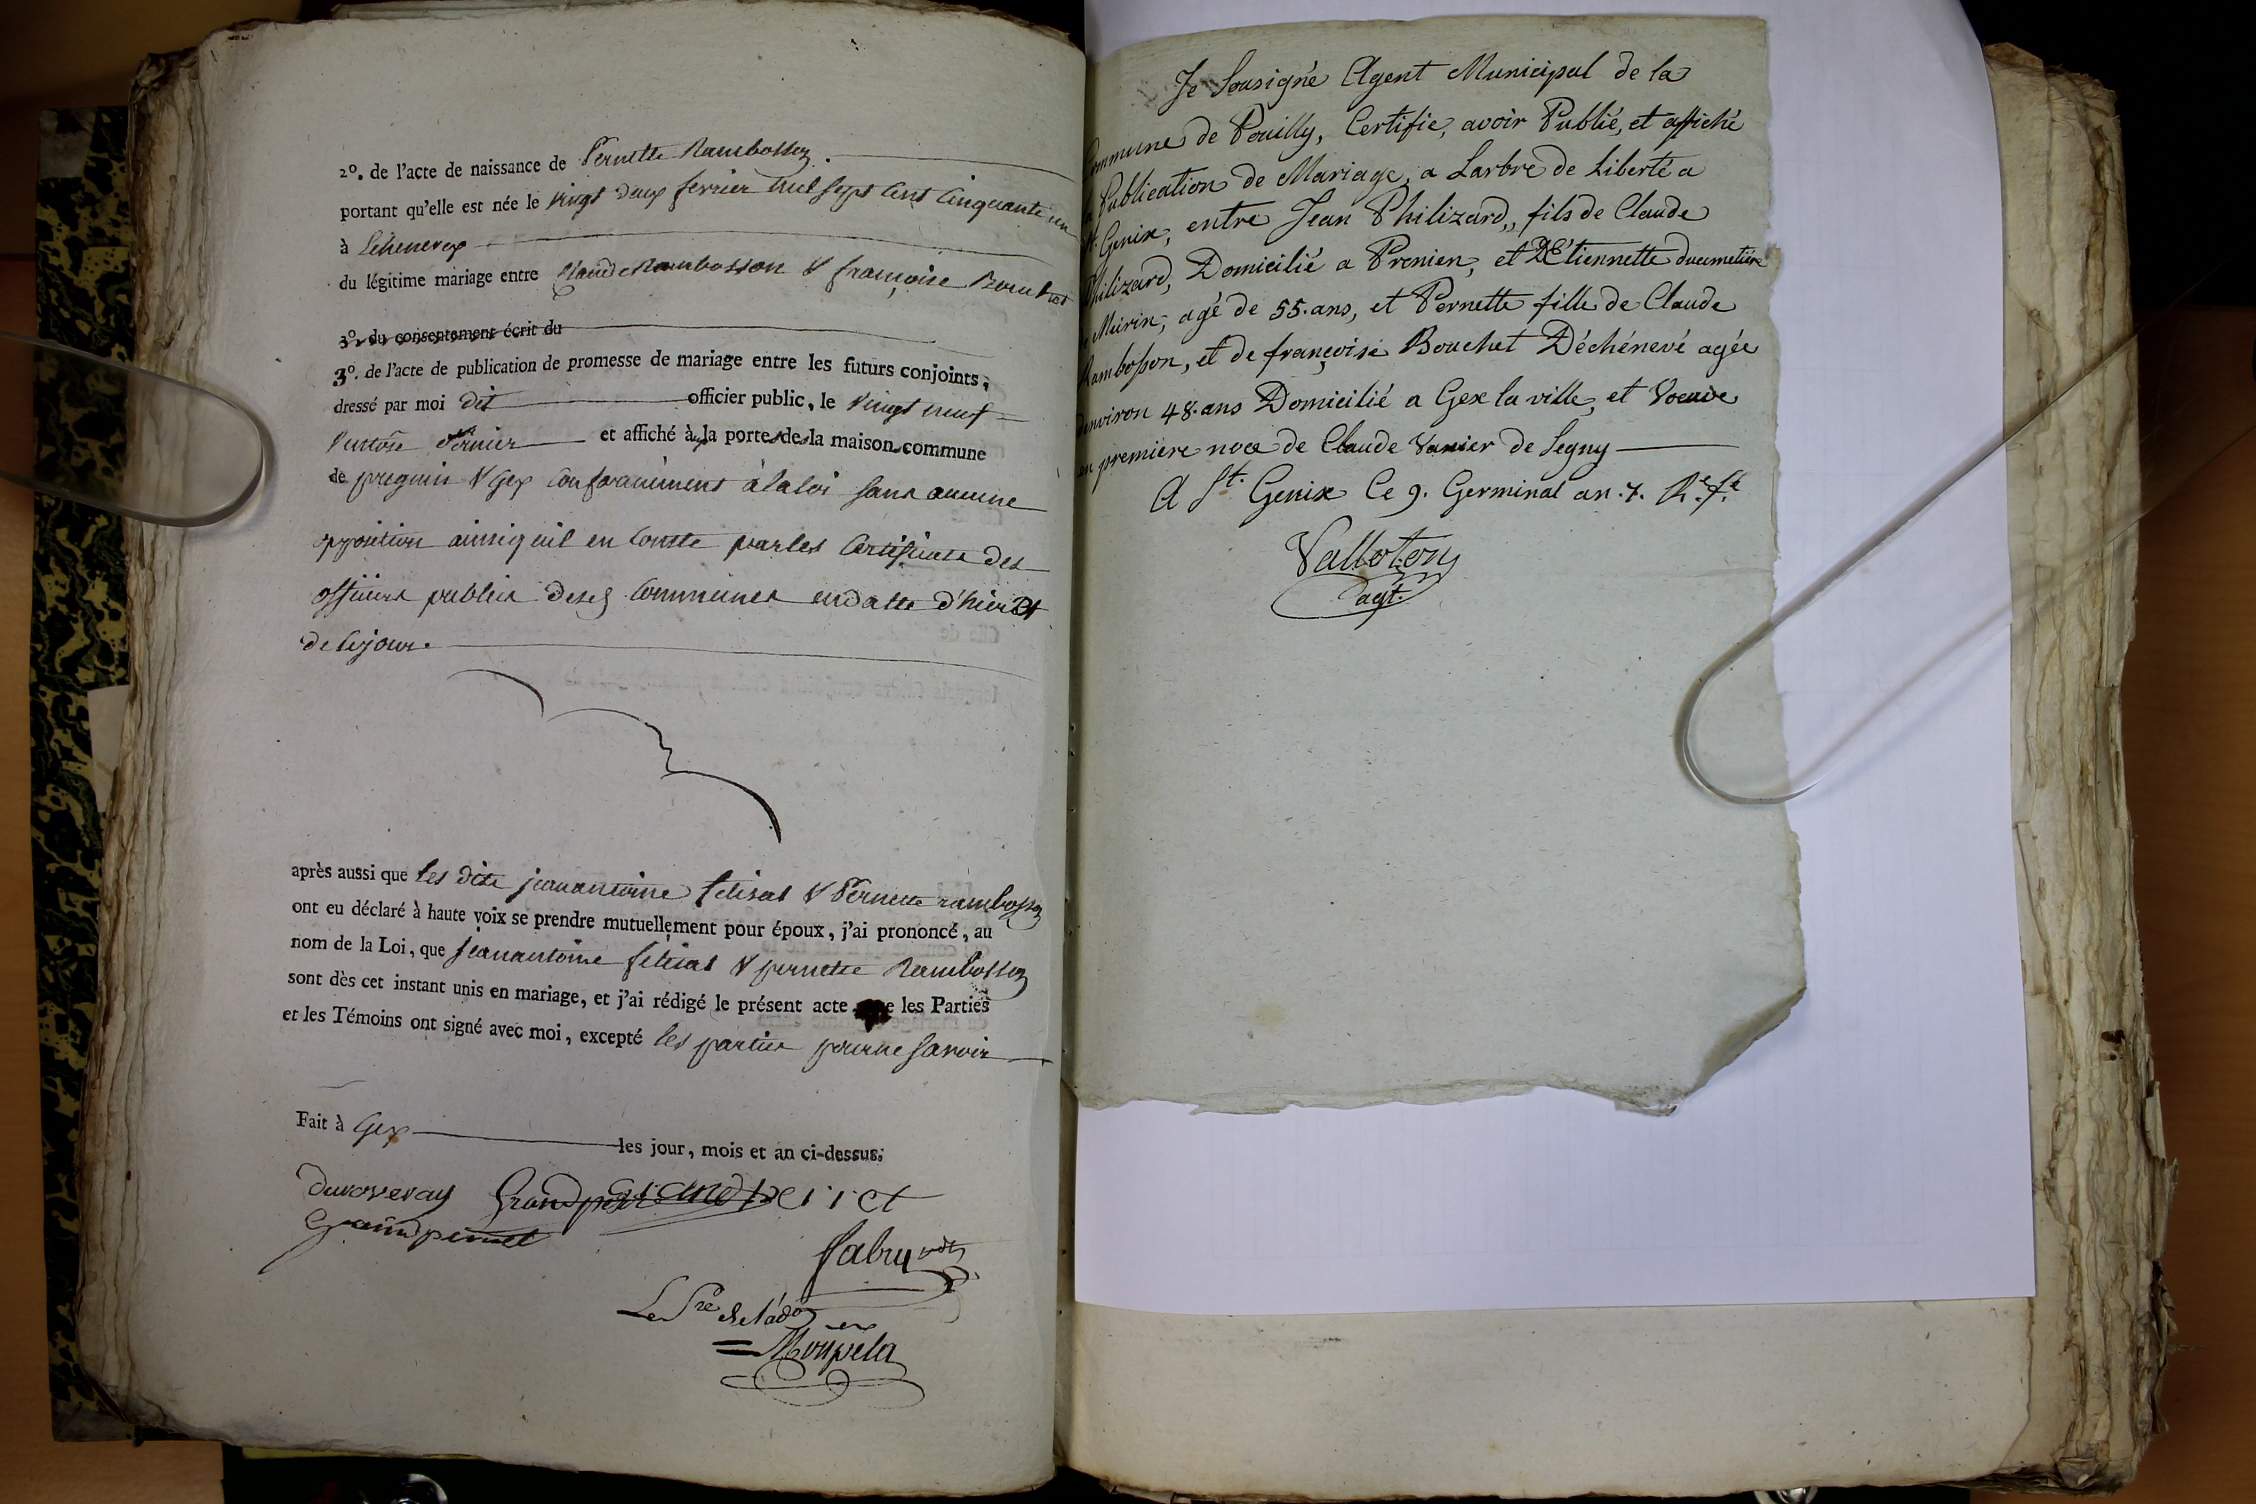 2º. de l'acte de naissance de Pernette Rambosson.
portant qu'elle est née le vingt deux fevrier mil sept cent cinquante un
à Echenevex
du légitime mariage entre Claude Rambosson & françoise Bouchet
3º. du consentement écrit du
3º. de l'acte de publication de promesse de mariage entre les futurs conjoints,
dressé par moi dit officier public, le vingt neuf
Ventôse dernier et affiché à la porte de la maison commune
de pregnin & Gex conformement à la loi sans aucune
opposition ainsi qu'il en conste par les Certificats des
officiers publics desd communes en datte d'hier et
de ce jour.
après aussi que les dits jean antoine felisat & Pernette rambosson
ont eu déclaré à haute voix se prendre mutuellement pour époux, j'ai prononcé, au
nom de la Loi, que jean antoine felisat & pernette Rambosson
sont dès cet instant unis en mariage, et j'ai rédigé le présent acte que les Parties
et les Témoins ont signé avec moi, excepté les parties pour ne savoir
Fait à Gex les jour, mois et an ci-dessus.
duroveray Grandperret
Grandperret
Fabry
Le Sre de l'ad
Je Sousigné Agent Municipal de la
Commune de Pouilly, Certifie, avoir Publié, et affiché
la Publication de Mariage, a Larbre de Liberté a
St. Genix, entre Jean Philizard, fils de Claude
Philizard, Domicilié a Prenien, et D'Etiennette ducimetière
de Meirin, agé de 55. ans, et Pernette fille de Claude
Rambosson, et de françoise Bouchet Déchénevé agée
denviron 48. ans Domicilié a Gex la ville, et Voeuve
en premiere noce de Claude Vanier de Segny
A St. Genix Ce 9. Germinal an. 7. Re. fse
Valloton
agt.